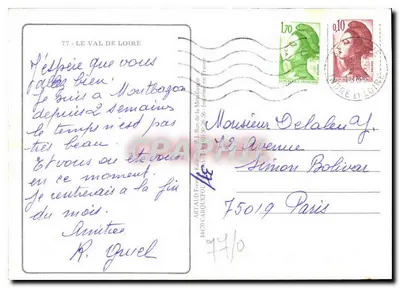 77 - LE VAL DE LOIRE
J'espère que vous
allez bien.
Je suis à Montbazon
depuis 2 semaines
le temps n'est pas
très beau.
Et vous où été vous
en ce moment.
Je rentrerais à la fin
du mois.
Amitiés
R.
1,70
0,10
INDRE ET LOIRE
Monsieur Delaleu J.
72 Avenue
Simon Bolivar
75019 Paris
77/0